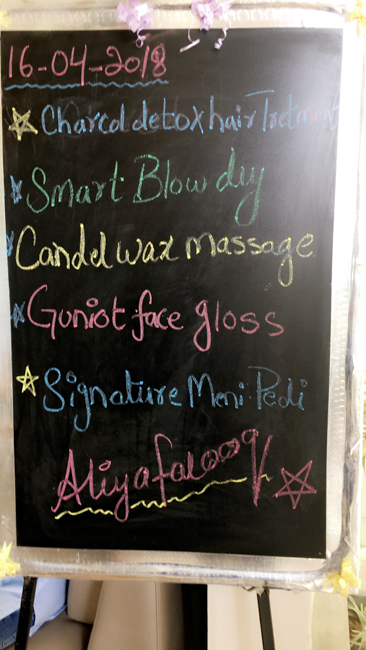 16-04-2018
Charcol detox hair Tretment
Smart Blow dry
Candel wax massage
Guniot face gloss
Signature Meni Pedi
Aliya farooq